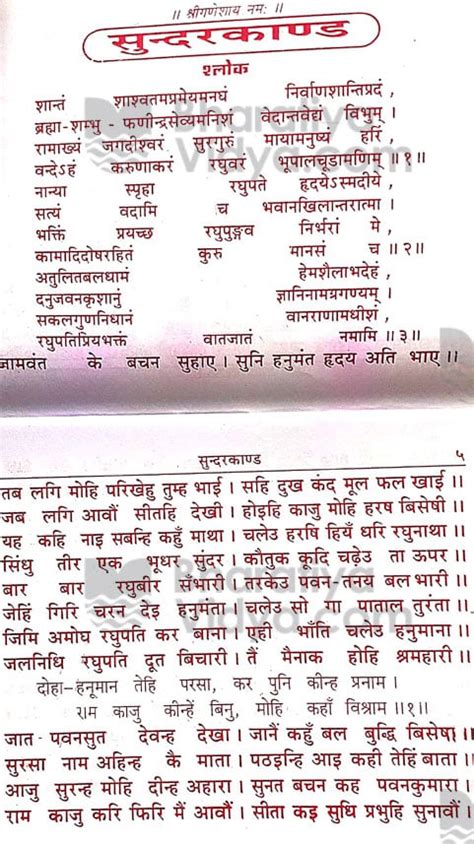 ॥ श्रीगणेशाय नमः ॥
सुन्दरकाण्ड
श्लोक
शान्तं शाश्वतमप्रमेयमनघं निर्वाणशान्तिप्रदं ,
ब्रह्मा-शम्भु-फणीन्द्रसेव्यमनिशं वेदान्तवेद्यं विभुम् ।
रामाख्यं जगदीश्वरं सुरगुरुं मायामनुष्यं हरिं ,
वन्देऽहं करुणाकरं रघुवरं भूपालचूडामणिम् ॥१॥
नान्या स्पृहा रघुपते हृदयेऽस्मदीये ,
सत्यं वदामि च भवानखिलान्तरात्मा ।
भक्तिं प्रयच्छ रघुपुङ्गव निर्भरां मे ,
कामादिदोषरहितं कुरु मानसं च ॥२॥
अतुलितबलधामं हेमशैलाभदेहं ,
दनुजवनकृशानुं ज्ञानिनामग्रगण्यम् ।
सकलगुणनिधानं वानराणामधीशं ,
रघुपतिप्रियभक्तं वातजातं नमामि ॥३॥
जामवंत के बचन सुहाए । सुनि हनुमंत हृदय अति भाए ॥
सुन्दरकाण्ड ५
तब लगि मोहि परिखेहु तुम्ह भाई । सहि दुख कंद मूल फल खाई ॥
जब लगि आवौं सीतहि देखी । होइहि काजु मोहि हरष बिसेषी ॥
यह कहि नाइ सबन्हि कहुँ माथा । चलेउ हरषि हियँ धरि रघुनाथा ॥
सिंधु तीर एक भूधर सुंदर । कौतुक कूदि चढ़ेउ ता ऊपर ॥
बार बार रघुबीर सँभारी । तरकेउ पवन-तनय बल भारी ॥
जेहिं गिरि चरन देइ हनुमंता । चलेउ सो गा पाताल तुरंता ॥
जिमि अमोघ रघुपति कर बाना । एही भाँति चलेउ हनुमाना ॥
जलनिधि रघुपति दूत बिचारी । तैं मैनाक होहि श्रमहारी ॥
दोहा–हनूमान तेहि परसा, कर पुनि कीन्ह प्रनाम ।
राम काजु कीन्हें बिनु, मोहि कहाँ विश्राम ॥१॥
जात पवनसुत देवन्ह देखा । जानैं कहुँ बल बुद्धि बिसेषा ॥
सुरसा नाम अहिन्ह कै माता । पठइन्हि आइ कही तेहिं बाता ॥
आजु सुरन्ह मोहि दीन्ह अहारा । सुनत बचन कह पवनकुमारा ॥
राम काजु करि फिरि मैं आवौं । सीता कइ सुधि प्रभुहि सुनावौं ॥
Bharatiya
Vidya.com
Bharatiya
Vidya.com